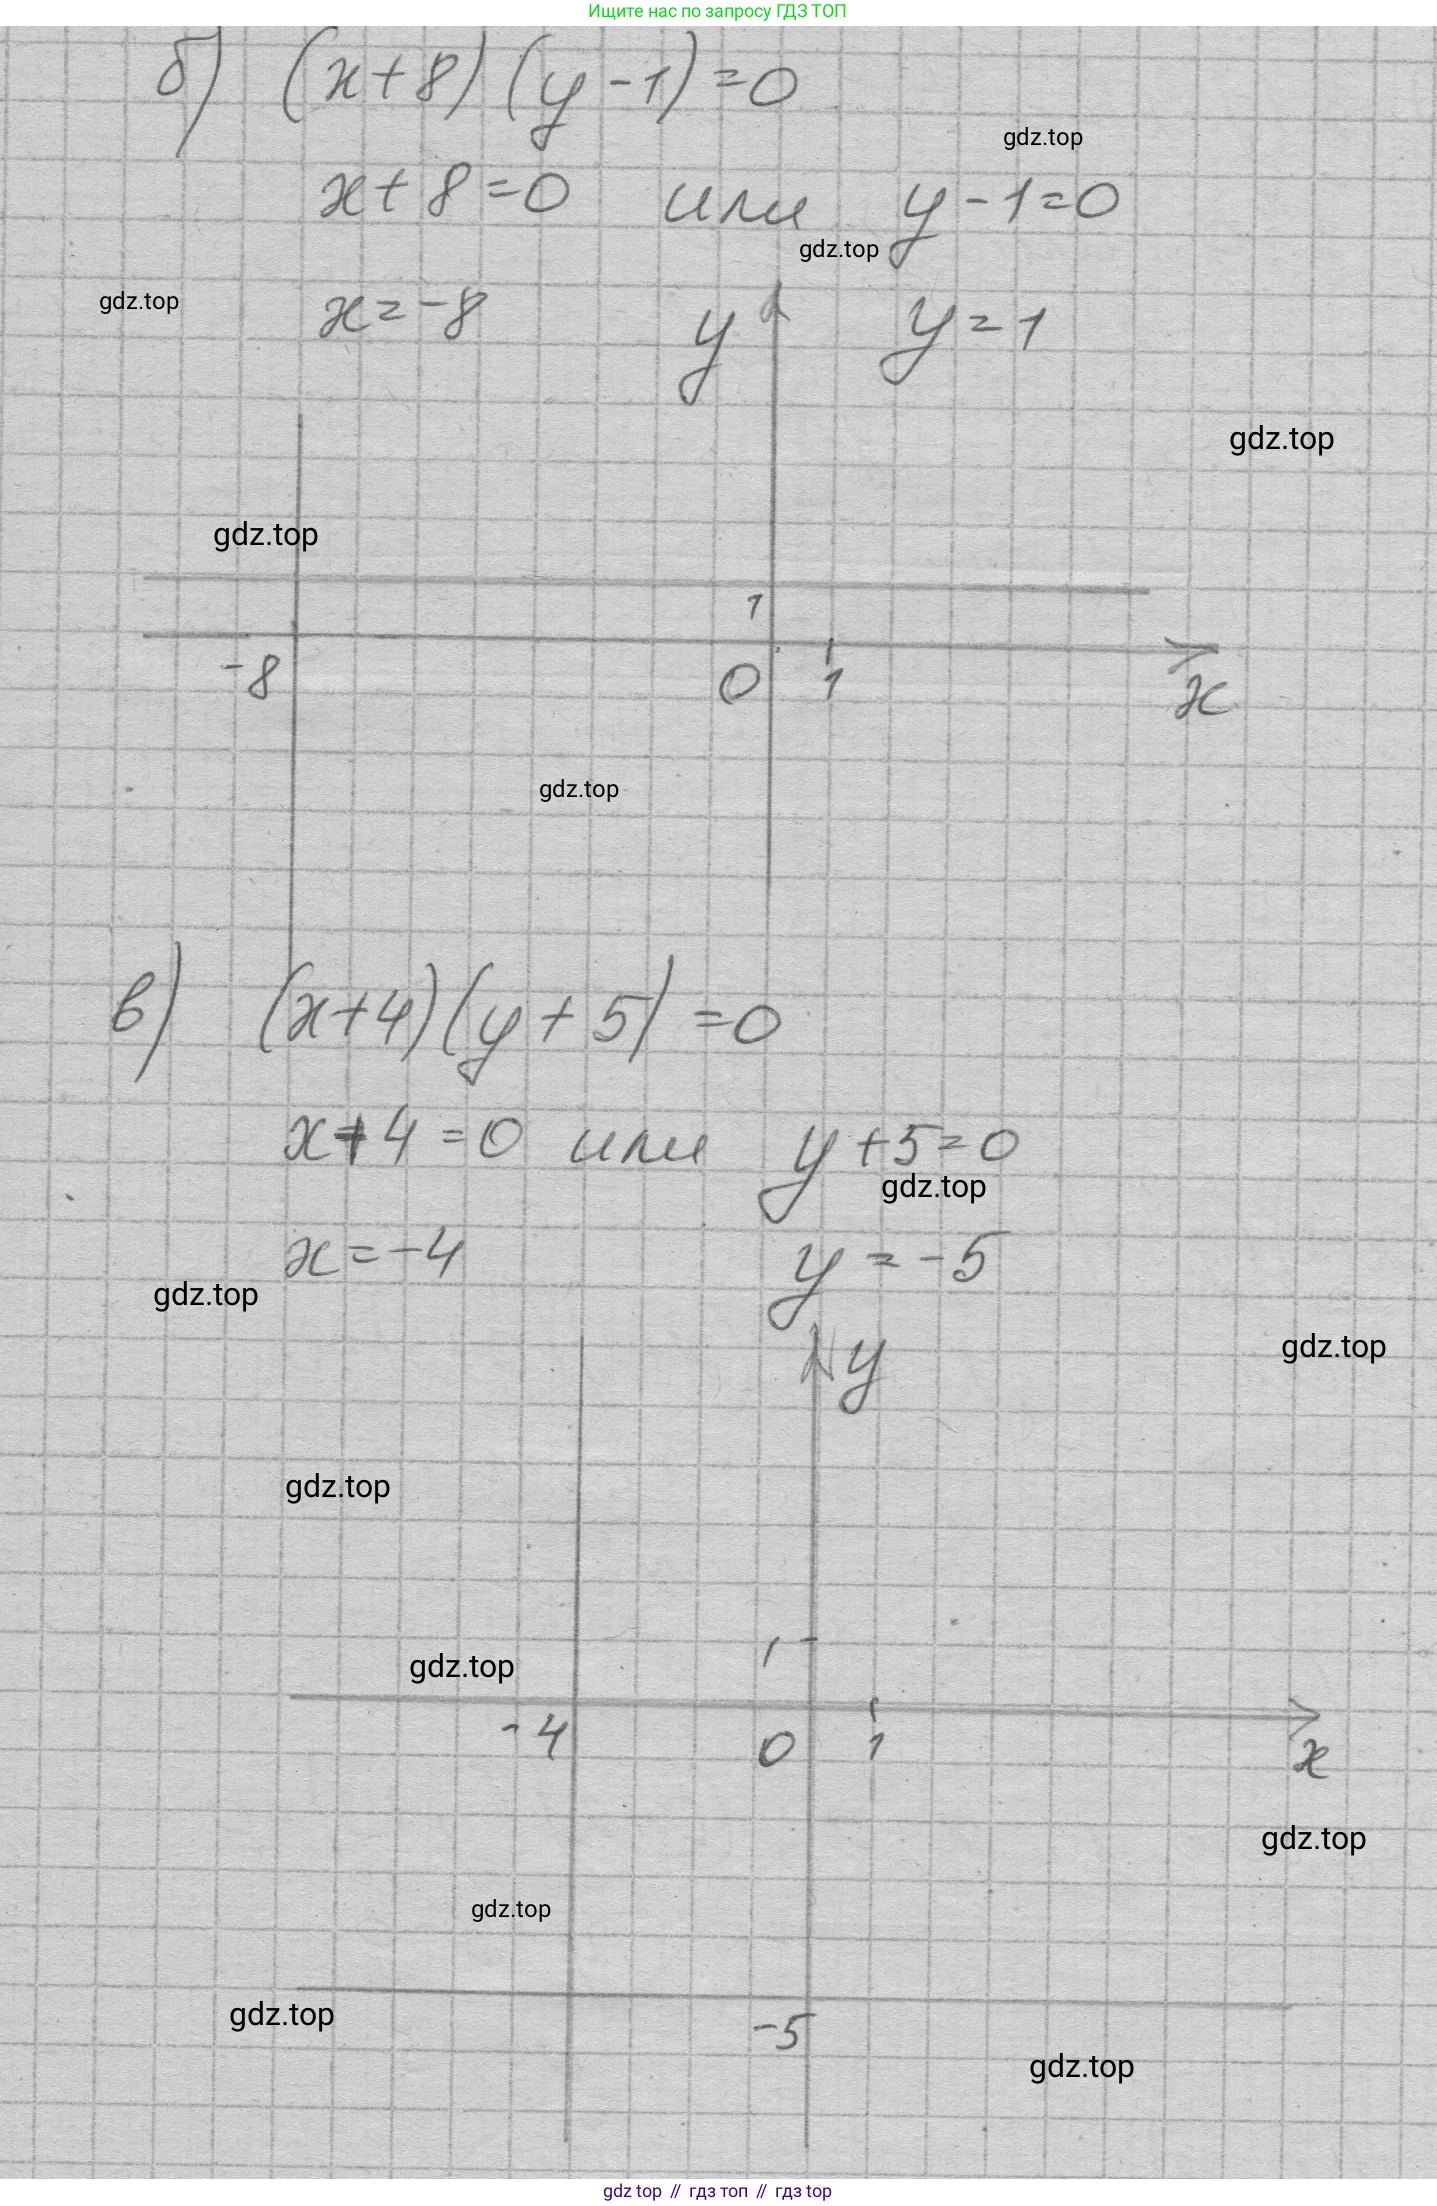 Ищите нас по запросу ГДЗ ТОП
б) (x+8)(y-1)=0
gdz.top
x+8=0 или y-1=0
gdz.top
gdz.top
x=-8 y y=1
gdz.top
gdz.top
1
-8 0 1 x
gdz.top
в) (x+4)(y+5)=0
x+4=0 или y+5=0
gdz.top
x=-4 y=-5
gdz.top
gdz.top
y
gdz.top
1
gdz.top
-4 0 1 x
gdz.top
gdz.top
gdz.top
-5
gdz.top
gdz top // гдз топ // гдз top